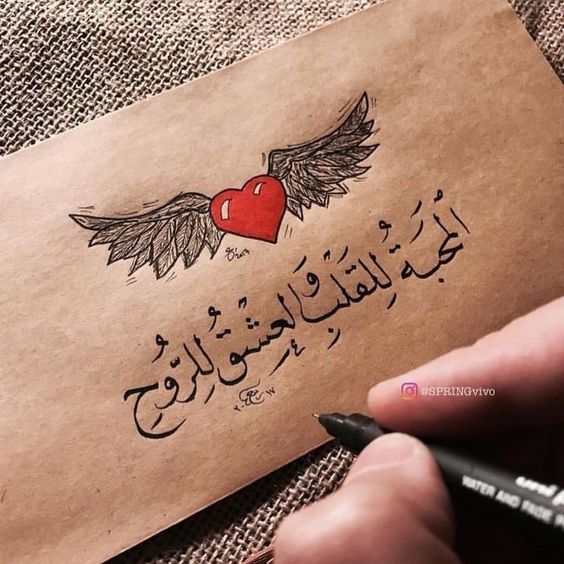 المَحبَةُ لِلقَلبِ وَالعِشْقُ لِلرّوُحِ
@SPRINGvivo
uni
WATER AND FADE